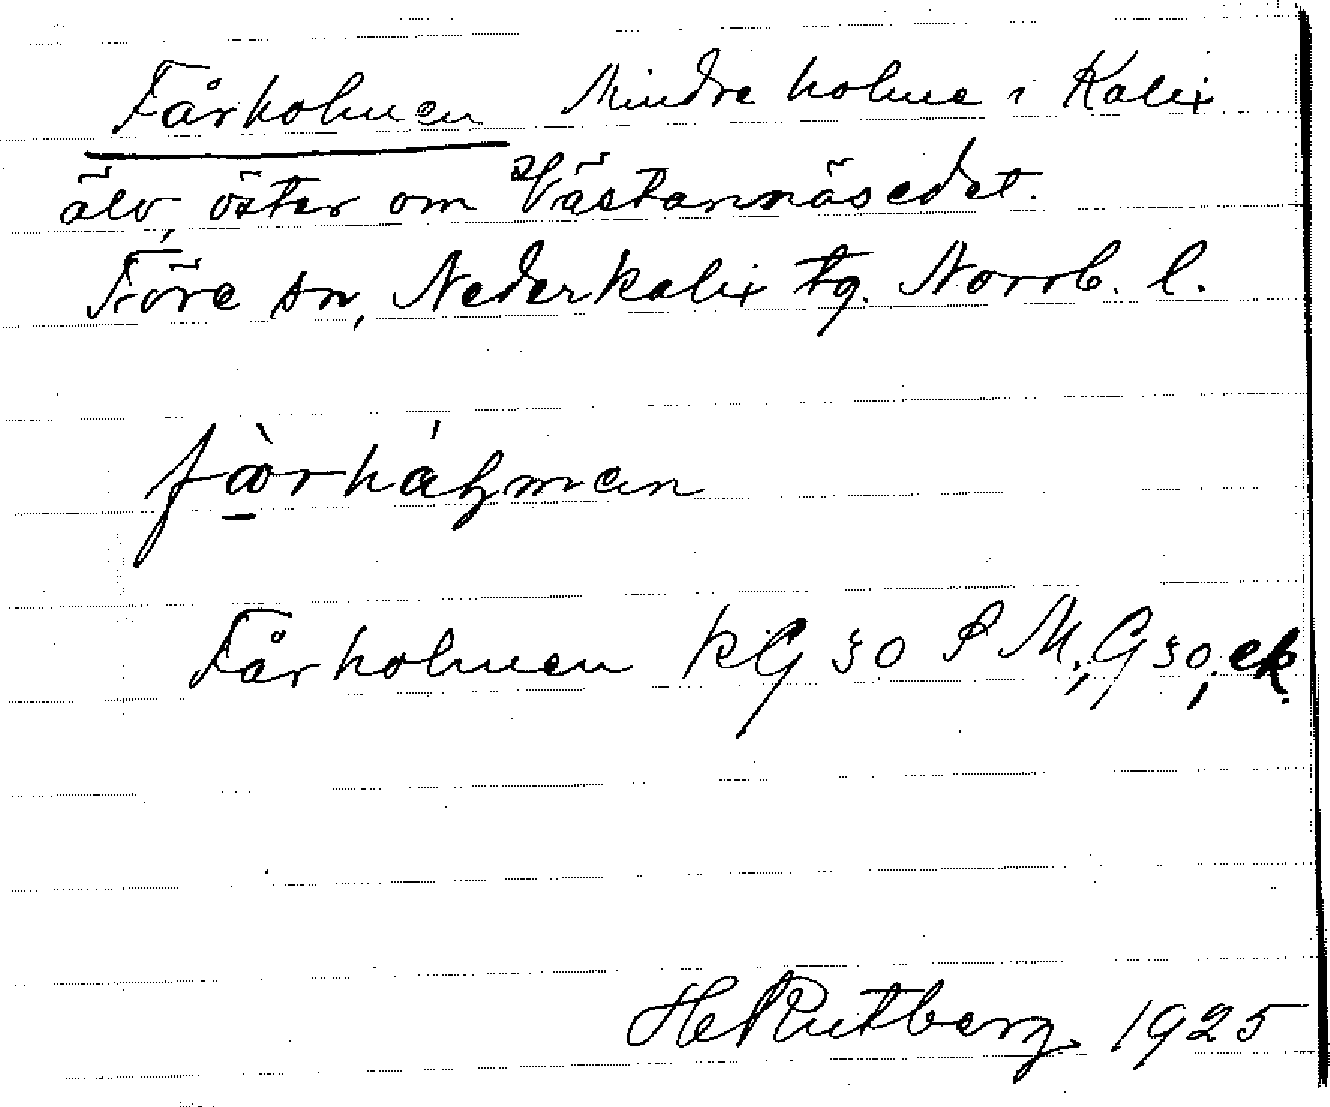 Fårholmen Mindre holme i Kalix
älv, öster om Västannäsedet.
Töre sn, Nederkalix tg. Norrb. l.
Fårholmen kG 30 S M; G 30; ek.
H Rutberg 1925